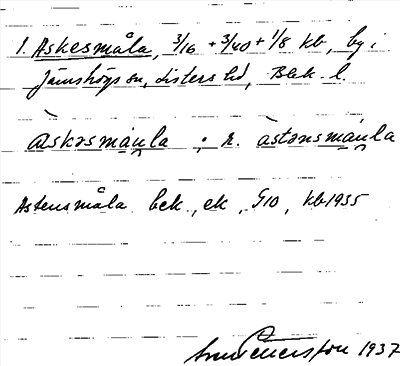 1. Askesmåla, 3/16 + 3/40 + 1/8 kb, by i
Jämshögs sn, Listers hd, Blek. l.
àskəsmåu̯la ; r. àstənsmåu̯la
Astensmåla bek., ek, G10, kb 1935
1937